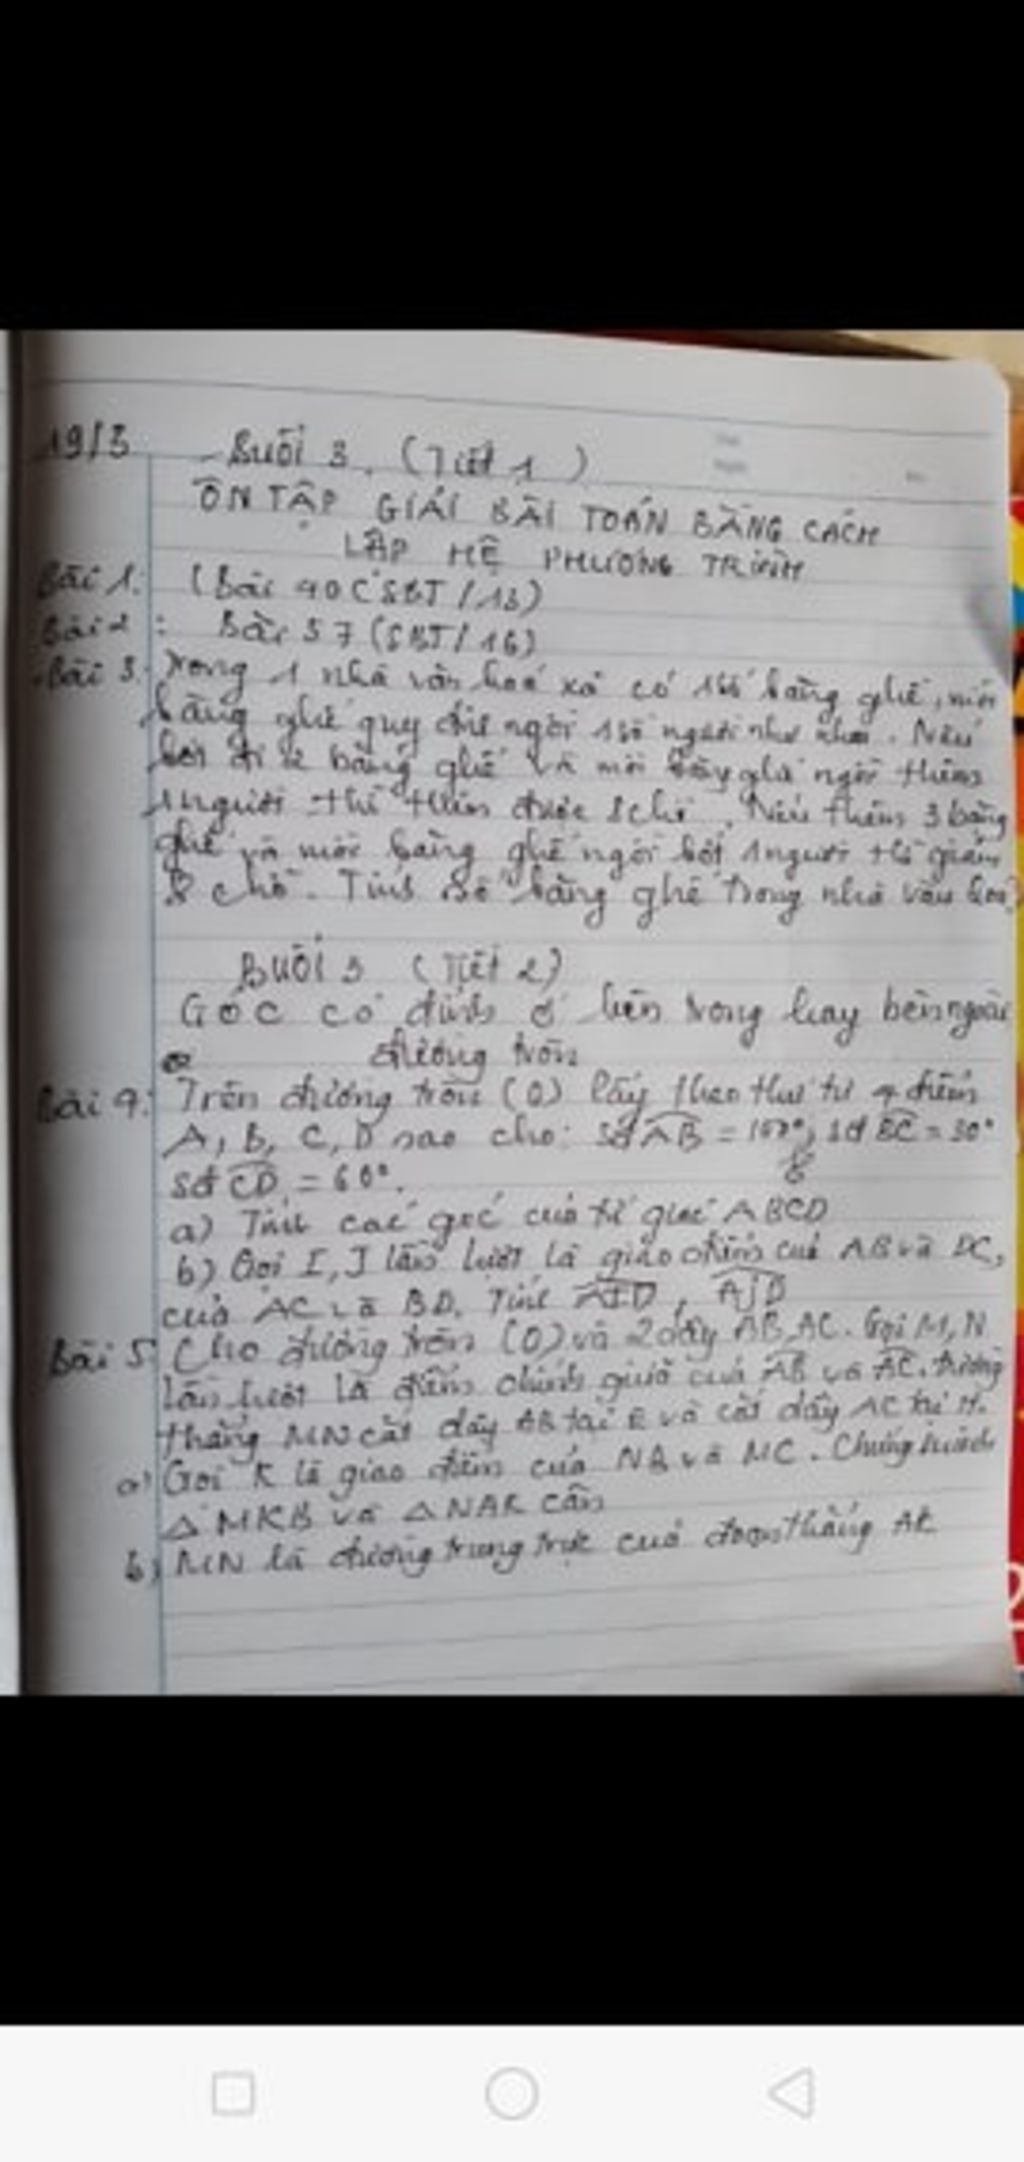 19/3 Buổi 3. (Tiết 1)
ÔN TẬP GIẢI BÀI TOÁN BẰNG CÁCH
LẬP HỆ PHƯƠNG TRÌNH
Bài 1: (Bài 40 SBT/13)
Bài 2: Bài 37 (SBT/16)
Bài 3: Trong 1 nhà văn hoá xã có băng ghế, mỗi
băng ghế quy định ngồi số người như nhau. Nếu
bớt đi 2 băng ghế và mỗi băng ghế ngồi thêm
1 người thì thêm được 8 chỗ. Nếu thêm 3 băng
ghế và mỗi băng ghế ngồi bớt 1 người thì giảm
8 chỗ. Tính số băng ghế trong nhà văn hoá
BUỔI 3 (Tiết 2)
GÓC có đỉnh ở bên trong hay bên ngoài
đường tròn
Bài 4: Trên đường tròn (O) lấy theo thứ tự 4 điểm
A, B, C, D sao cho: sđ AB = sđ BC = 30°
sđ CD = 60°.
a) Tính các góc của tứ giác ABCD
b) Gọi I, J lần lượt là giao điểm của AB và DC,
của AC và BD. Tính AID, AJD
Bài 5: Cho đường tròn (O) và 2 dây AB, AC. Gọi M, N
lần lượt là điểm chính giữa của AB và AC. Đường
thẳng MN cắt dây AB tại E và cắt dây AC tại H.
a) Gọi K là giao điểm của NB và MC. Chứng minh
Δ MKB và Δ NAK cân
b) MN là đường trung trực của đoạn thẳng AK